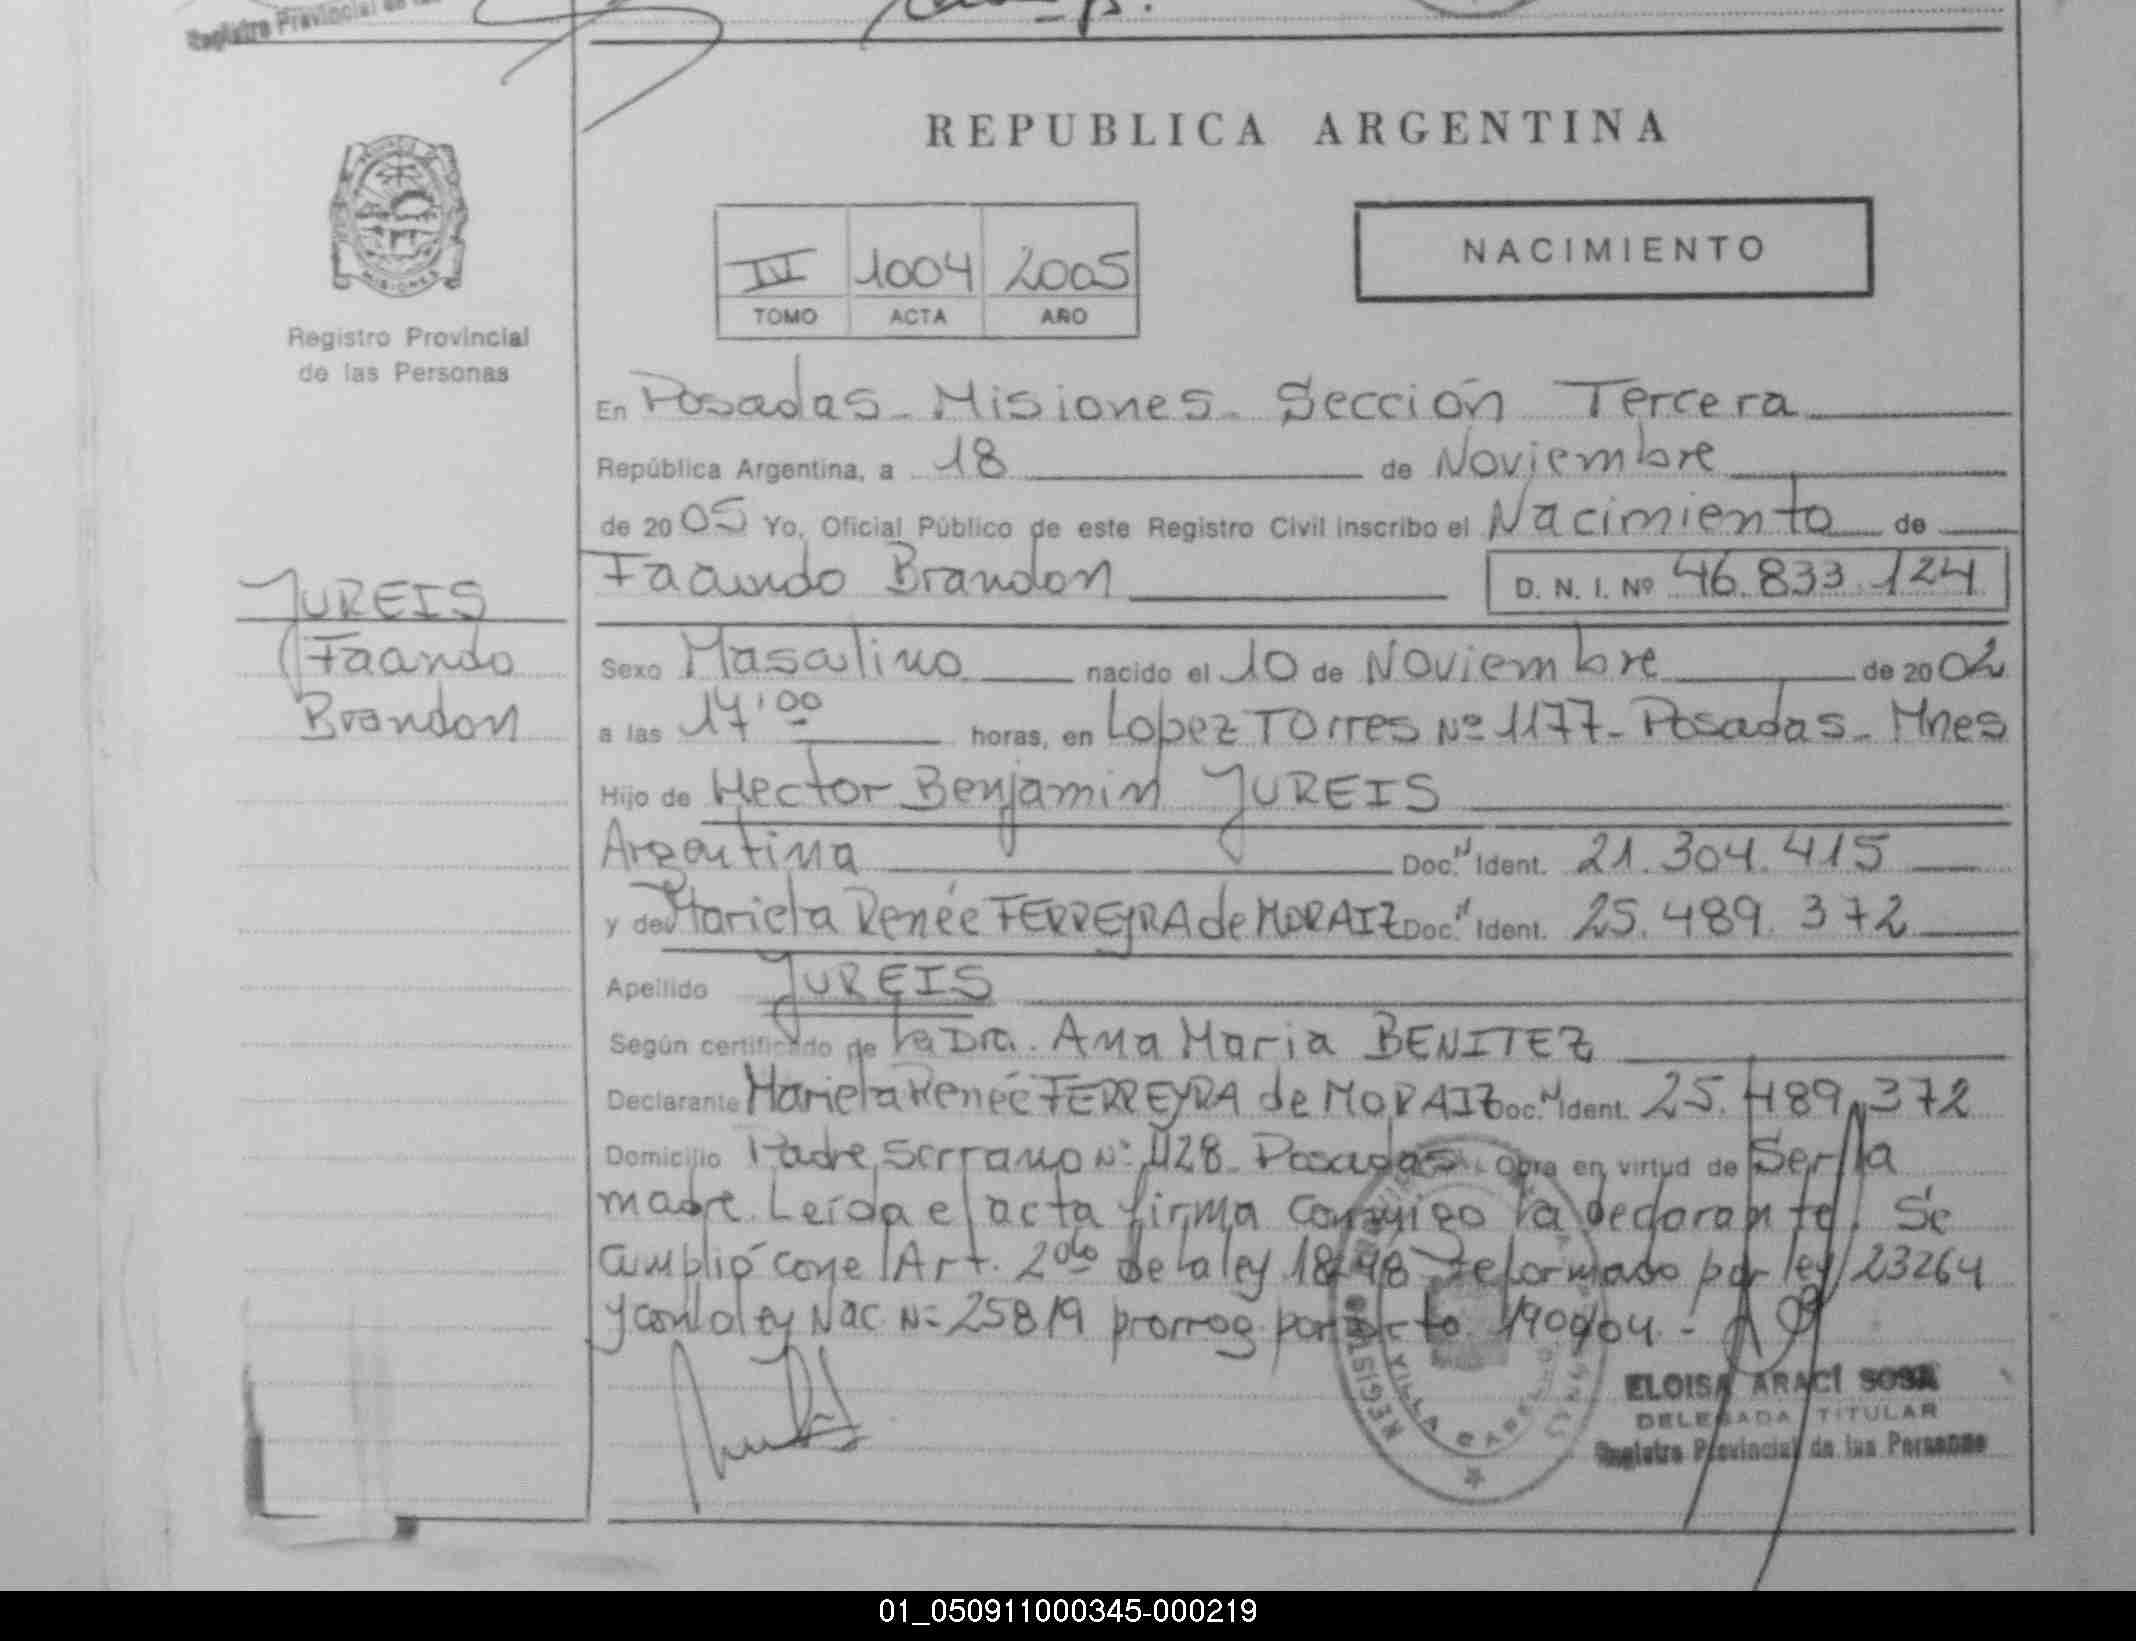 Registro Provincial de las
REPUBLICA ARGENTINA
NACIMIENTO
IV 1004 2005
TOMO ACTA AÑO
MISIONES
Registro Provincial
de las Personas
En Posadas - Misiones - Sección Tercera
República Argentina, a 18 de Noviembre
de 2005 Yo, Oficial Público de este Registro Civil inscribo el Nacimiento de
Facundo Brandon D. N. I. Nº 46.833.124
YUREIS
Facundo
Brandon
Sexo Masculino nacido el 10 de Noviembre de 2002
a las 17'00 horas, en Lopez Torres Nº 1177 - Posadas - Mnes
Hijo de Hector Benjamin YUREIS
Argentina Doc. N Ident. 21.304.415
y de Marieta Renée FERREYRA de MORAIZ Doc. N Ident. 25.489.372
Apellido YUREIS
Según certificado de la Dra. Ana Maria BENITEZ
Declarante Marieta Renée FERREYRA de MORAIZ Doc. N Ident. 25.489.372
Domicilio Padre Serrano Nº 1128 - Posadas - Obra en virtud de Ser la
madre. Leída el acta firma conmigo la declarante. Se
Cumplió con el Art. 2do de la ley 18248 reformado por ley 23264
y con la ley Nac Nº 25819 prorrog por Dcto 1900/04 -
REGISTRO
VILLA CABELLO
ELOISA ARACI SOSA
DELEGADA TITULAR
Registro Provincial de las Personas
01_050911000345-000219